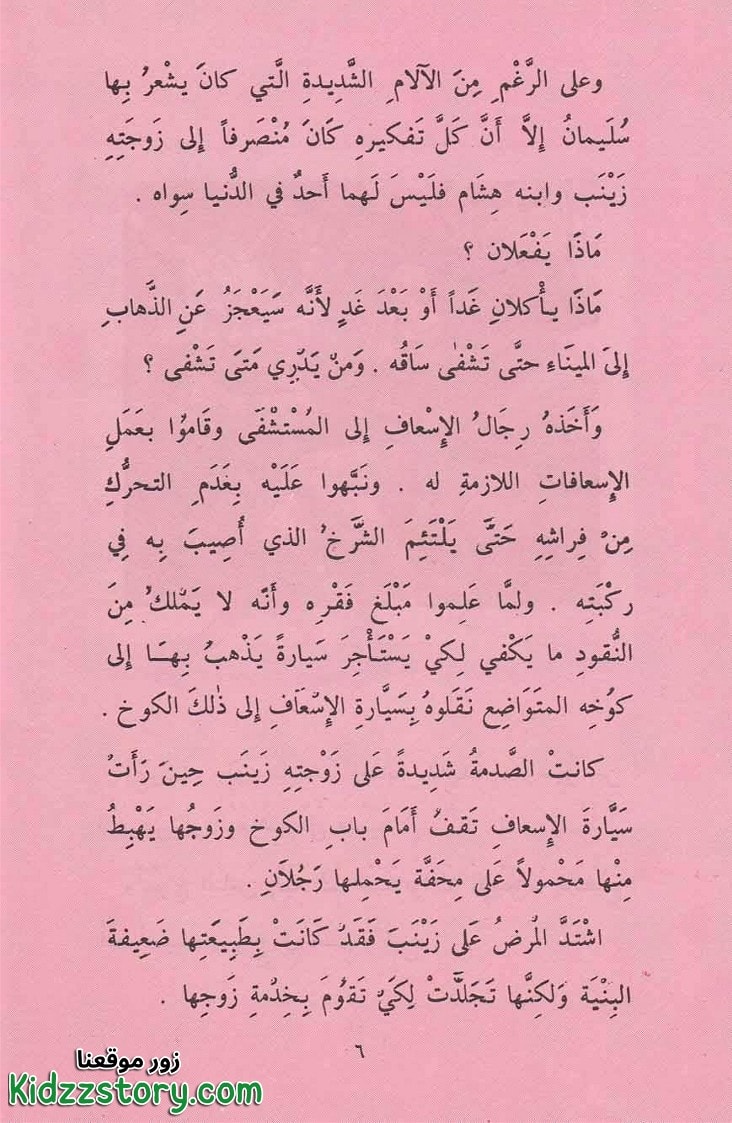 وعلى الرَّغْمِ مِنَ الآلامِ الشَّدِيدةِ الَّتي كانَ يشْعرُ بِها
سُلَيمانُ إلاَّ أَنَّ كَلَّ تَفكيرهِ كَانَ مُنْصَرفاً إلى زَوجَتِهِ
زَيْنَب وابنه هِشَام فلَيْسَ لَهما أَحدٌ في الدُّنيا سِواه .
مَاذَا يَفْعَلان ؟
مَاذَا يأْكلانِ غَداً أَوْ بَعْدَ غَدٍ لأَنَّه سَيَعْجَزُ عَنِ الذَّهابِ
إلىَ الميَناءِ حتَّى تَشْفٰى سَاقُه . وَمنْ يَدْرِي مَتىَ تَشْفى ؟
وَأَخَذهُ رِجَالُ الإسْعافِ إلى المُسْتشْفَى وقَامُوْا بعَمَلِ
الإسعافاتِ اللازمةِ له . ونَبَّهوا عَلَيْه بِغَدَمِ التحرُّكِ
مِنْ فِراشِهِ حَتَّى يَلْتَئِمَ الشَّرَّخُ الذي أُصِيبَ بِه فِي
ركْبَتِه . ولمَّا عَلِموا مَبْلَغ فَقْرِه وأَنَّه لا يَمْلكُ مِنَ
النُّقودِ ما يَكْفي لِكيْ يَسْتَأْجِرَ سَيارةً يَذْهبُ بِهَـا إلى
كوُخِه المتَوَاضِع نَقَلوهُ بِسَيَّارةِ الإسْعَافِ إلى ذٰلكَ الكوخ .
كانتْ الصَّدمةُ شَدِيدةً عَلى زَوْجتِهِ زَينَب حِينَ رَأَتْ
سَيَّارةَ الإسعافِ تَقفُ أَمَامَ بابِ الكوخ وزَوجُها يَهْبِطُ
مِنْها مَحْمولاً عَلى مِحَفَّة يَحْمِلها رَجُلاَنِ .
اشْتَدَّ المُرضُ عَلى زَيْنبَ فَقَدْ كَانَتْ بِطَبِيعَتِها ضَعِيفةَ
البِنْيَة وَلكِنَّها تَجَلدَّتْ لِكَيْ تَقوُمَ بِخِدْمةِ زَوجِها .
٦
زور موقعنا
Kidzzstory.com